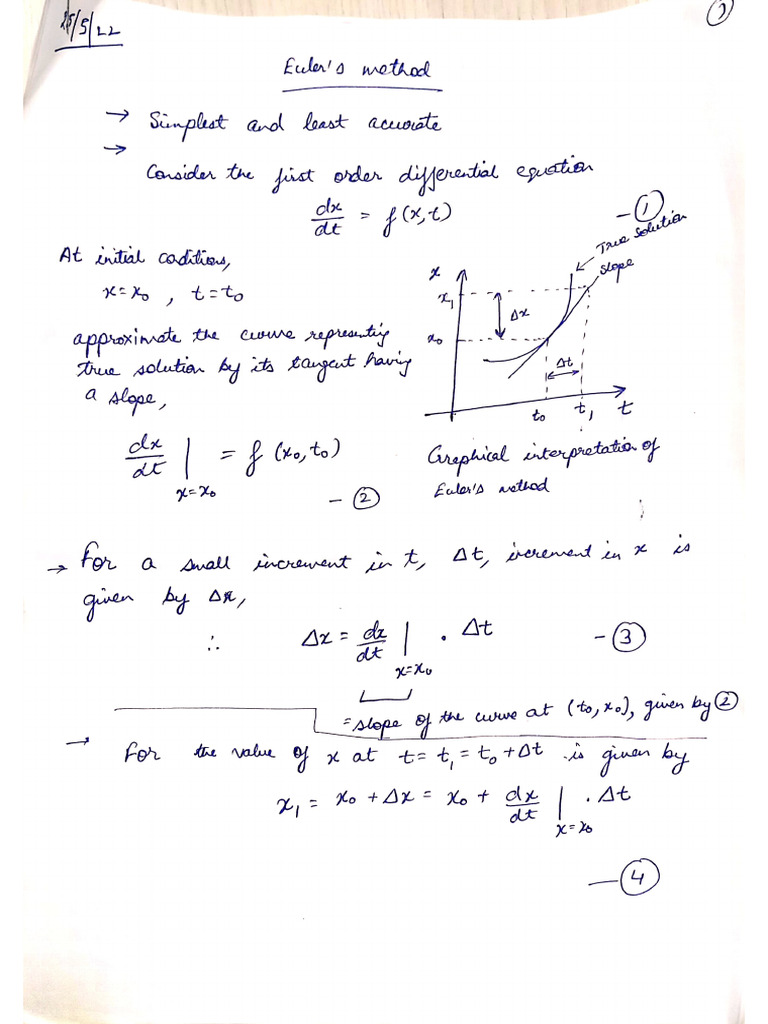 25/5/22
1
Euler's method
→ Simplest and least accurate
→
Consider the first order differential equation
dx/dt = f(x,t) - ①
At initial caditions,
x=x₀ , t=t₀
approximate the curve representing
true solution by its tangent having
a slope,
dx/dt |x=x₀ = f(x₀,t₀)
- ②
True solution
slope
x
x₁
Δx
x₀
Δt
t₀ t₁ t
Graphical interpretation of
Euler's method
→ For a small increment in t, Δt, increment in x is
given by Δx,
∴ Δx = dx/dt |x=x₀ . Δt - ③
=slope of the curve at (t₀,x₀), given by ②
→ For the value of x at t=t₁=t₀+Δt is given by
x₁ = x₀ + Δx = x₀ + dx/dt |x=x₀ . Δt
- ④